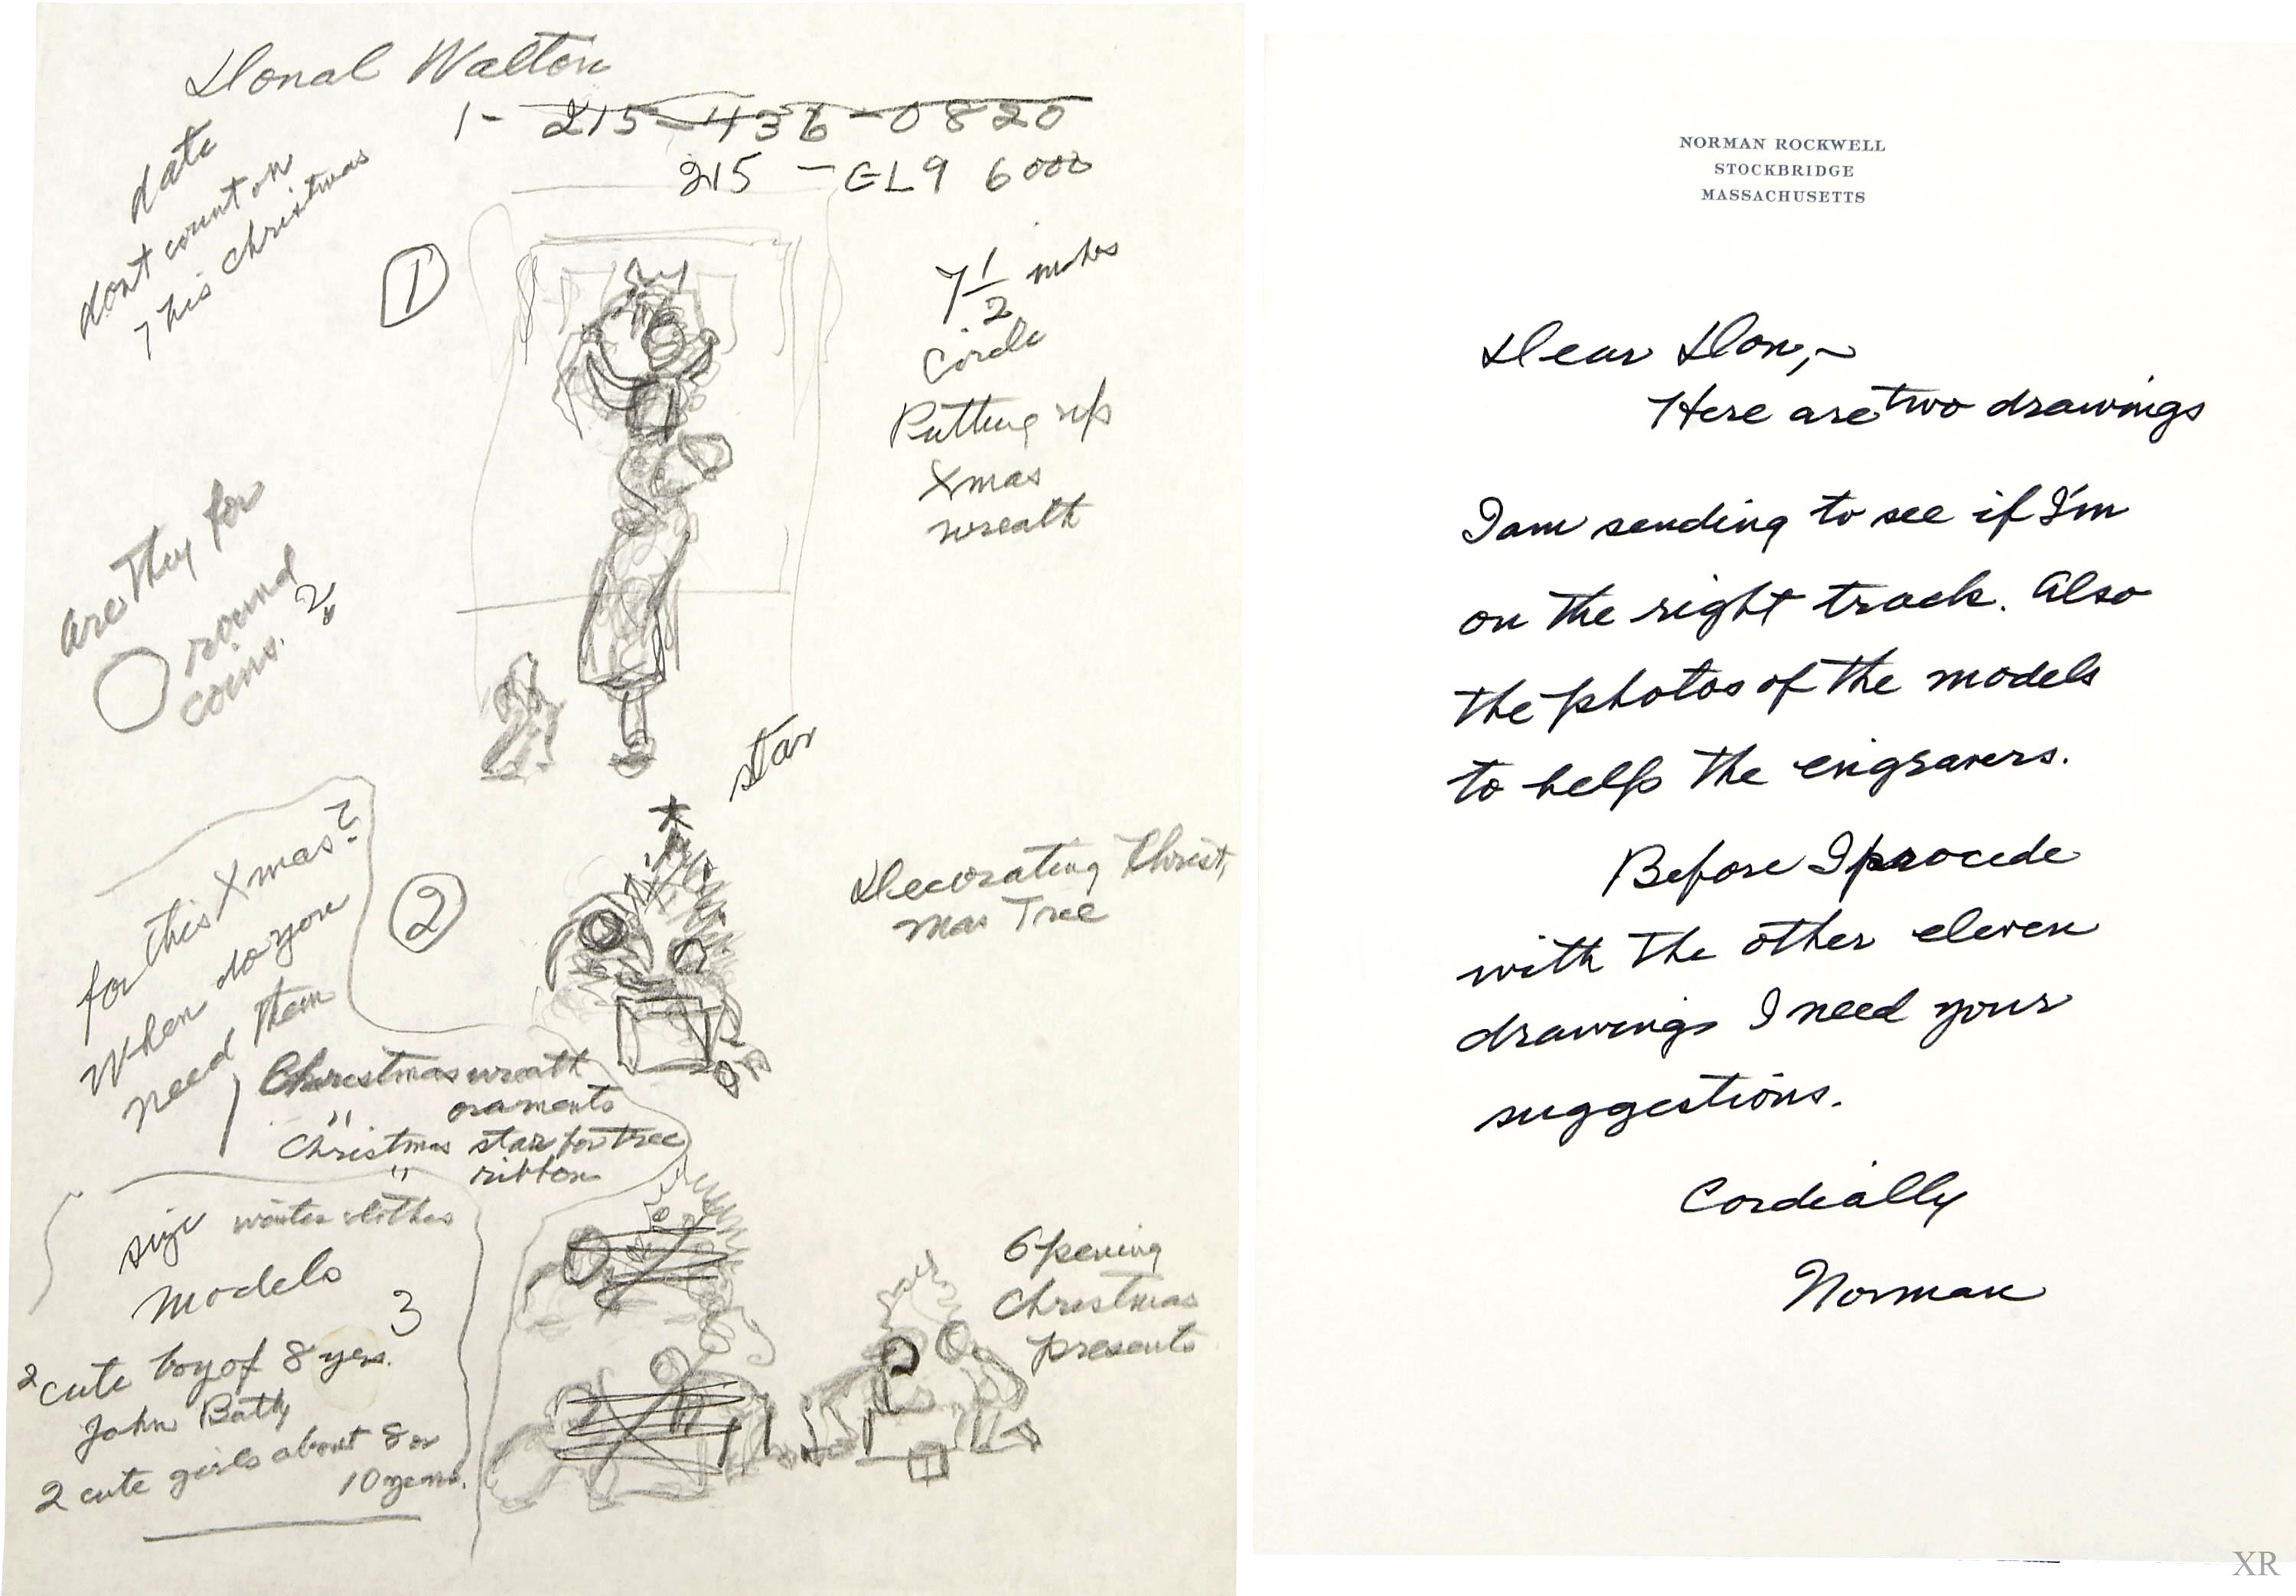 Donal Walton
1- 215-436-0820
215 - GL9 6000
date
dont count on
This christmas
1
7 1/2 inches
Circle
Putting up
Xmas
wreath
are They for
round
coins. ?
star
for this Xmas?
When do you
need Them
2
Decorating Christ,
mas Tree
Christmas wreath
" oraments
Christmas star for Tree
" ribbon
size winter clothes
Models
3
2 cute boy of 8 yrs.
John Batty
2 cute girls about 8 or
10 years.
Opening
Christmas
presents
NORMAN ROCKWELL
STOCKBRIDGE
MASSACHUSETTS
Dear Don,~
Here are two drawings
I am sending to see if I'm
on the right track. Also
the photos of the models
to help the engravers.
Before I procede
with the other eleven
drawings I need your
suggestions.
Cordially
Norman
XR